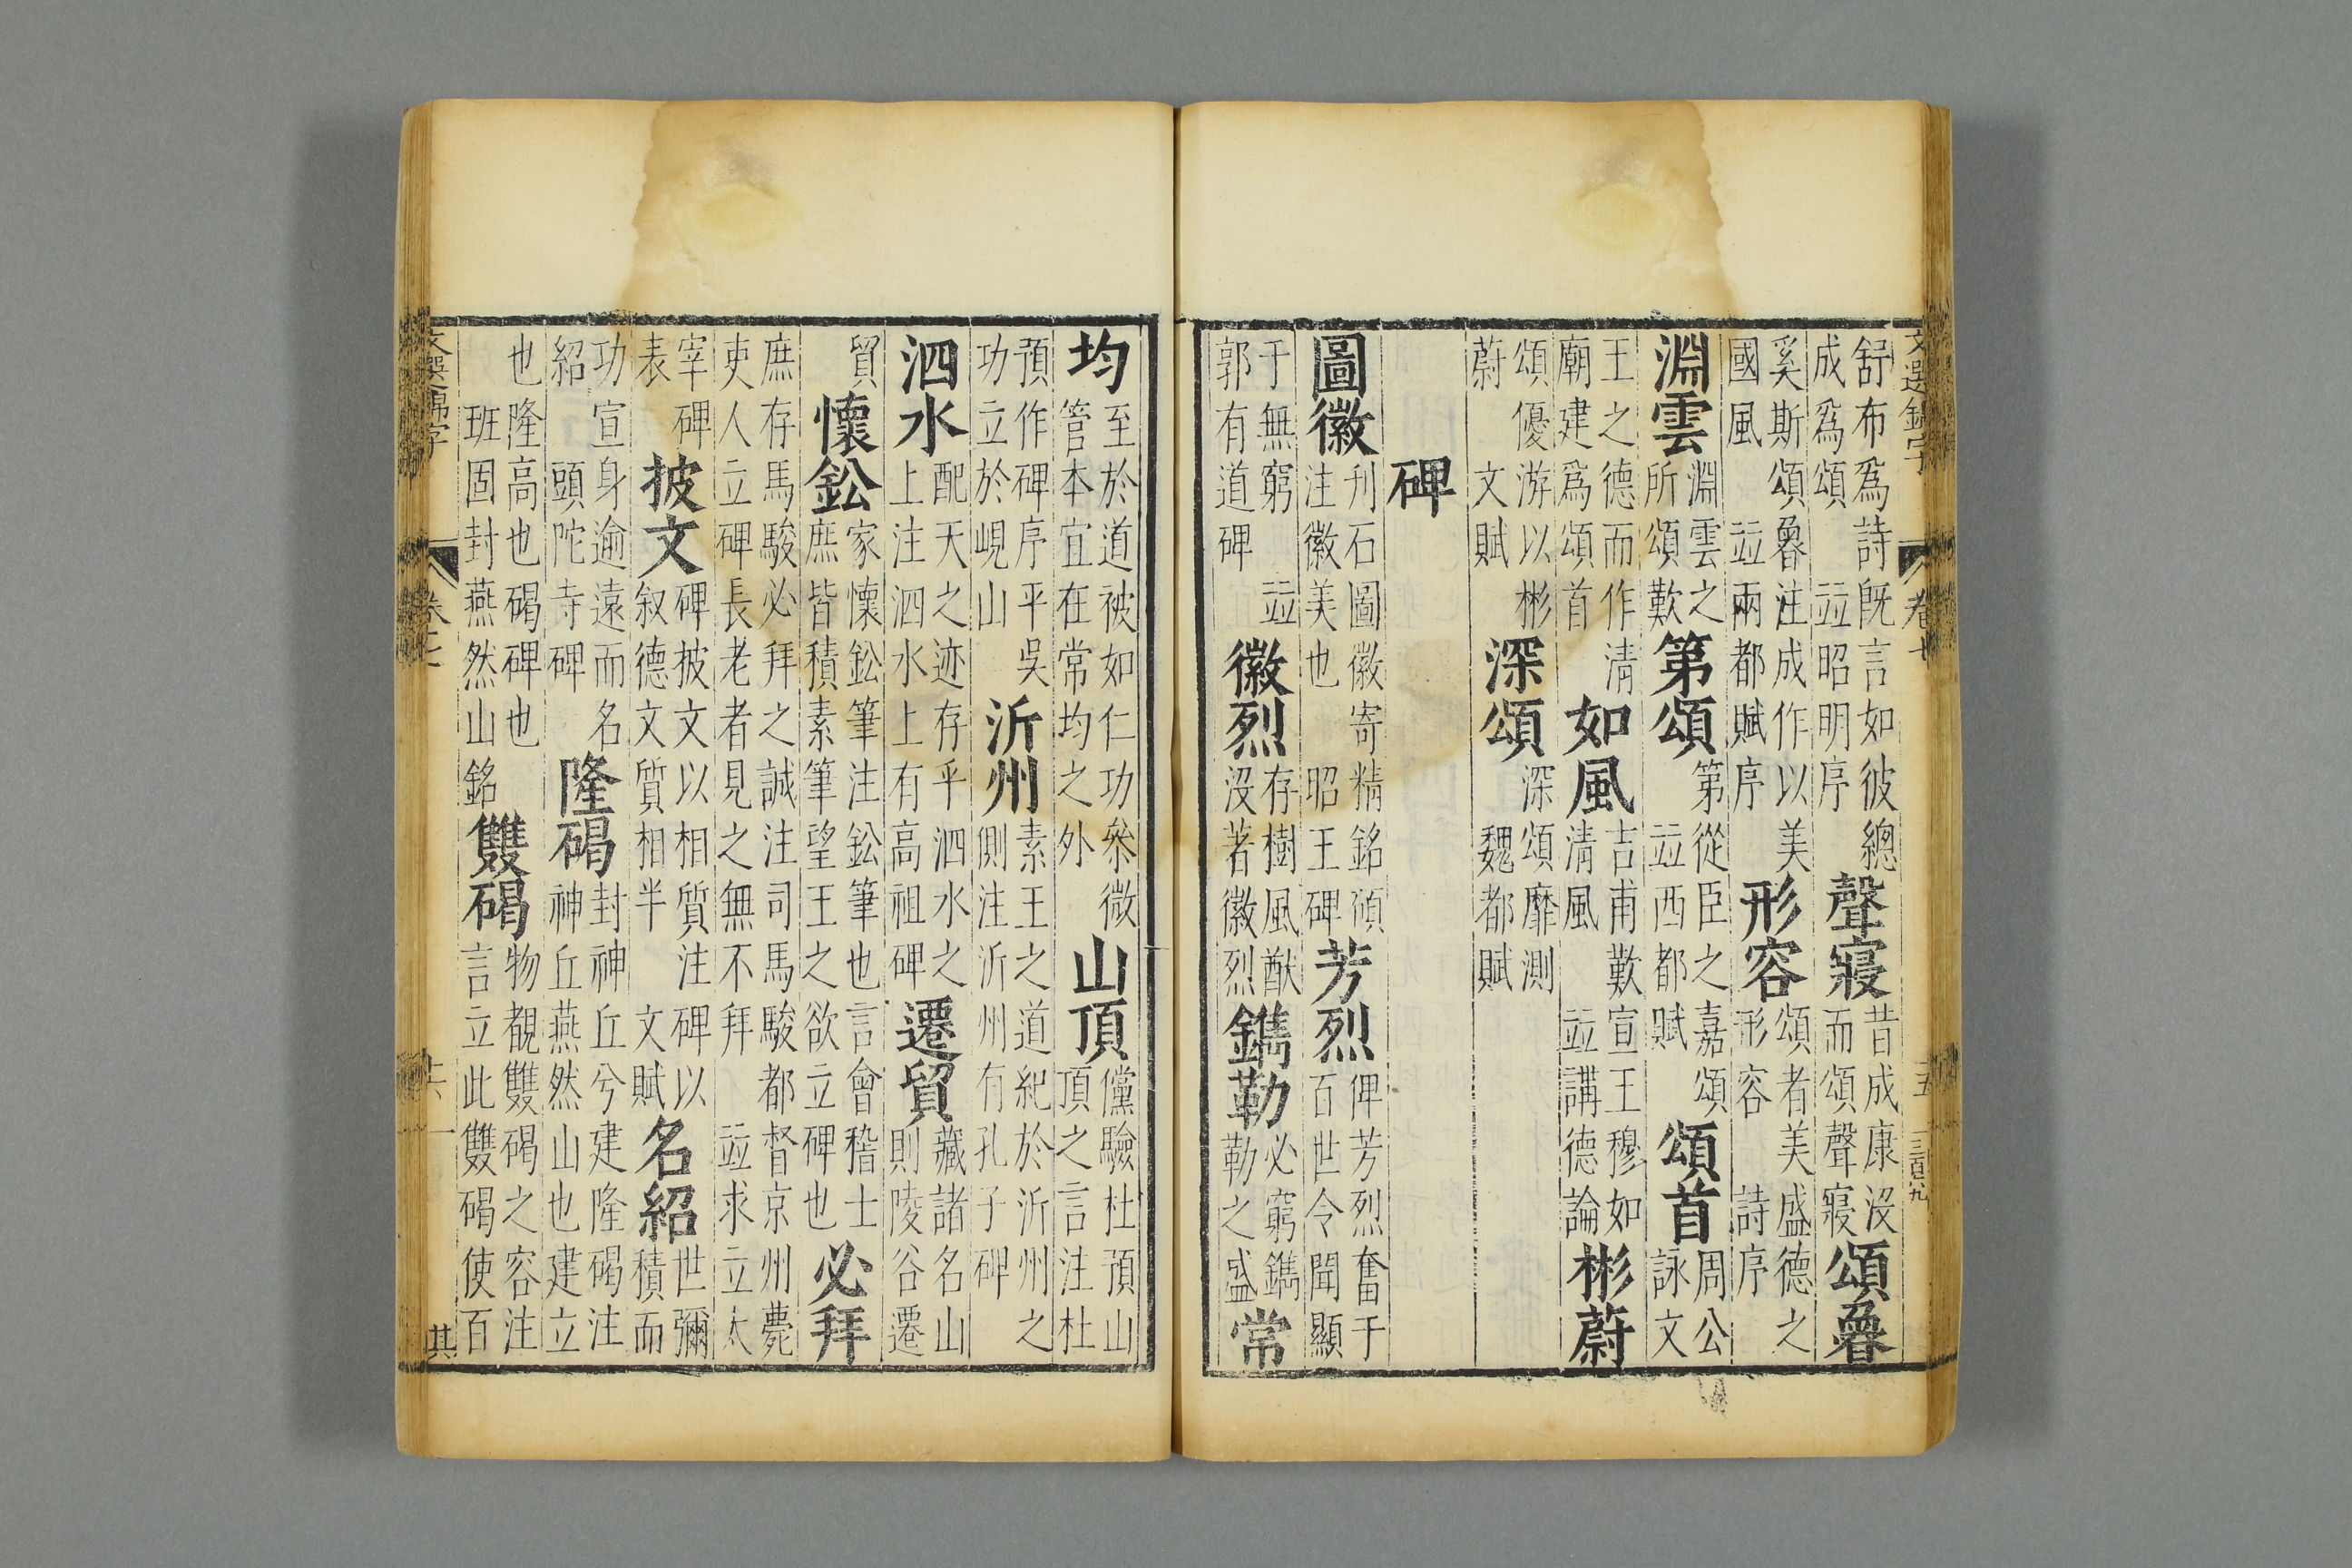 舒布爲詩既言如彼總
成爲頌 竝昭明序
聲寢
昔成康沒
而頌聲寢
頌彝
奚斯頌彝注成作以美
國風 竝兩都賦序
形容
頌者美盛德之
形容 詩序
淵雲
淵雲之
所頌歎
第頌
第從臣之嘉頌
竝西都賦
頌首
周公
詠文
王之德而作清
廟建爲頌首
如風
吉甫歎宣王穆如
清風 竝講德論
彬蔚
頌優游以彬
蔚 文賦
深頌
深頌靡測
魏都賦
碑
圖徽
刋石圖徽寄精銘頌
注徽美也 昭王碑
芳烈
俾芳烈奮于
百世令聞顯
于無窮 竝
郭有道碑
徽烈
存樹風猷
沒著徽烈
鐫勒
必窮鐫
勒之盛
常
均
至於道被如仁功叅微
管本宜在常均之外
山頂
儻驗杜預山
頂之言注杜
預作碑序平吳
功立於峴山
沂州
素王之道紀於沂州之
側注沂州有孔子碑
泗水
配天之迹存乎泗水之
上注泗水上有高祖碑
遷貿
藏諸名山
則陵谷遷
貿
懷鈆
家懷鈆筆注鈆筆也言會稽士
庶皆積素筆望王之欲立碑也
必拜
庶存馬駿必拜之誠注司馬駿都督京州薨
吏人立碑長老者見之無不拜 竝求立太
宰碑
表
披文
碑披文以相質注碑以
叙德文質相半 文賦
名紹
世彌
積而
功宣身逾遠而名
紹 頭陀寺碑
隆碣
封神丘兮建隆碣注
神丘燕然山也建立
也隆高也碣碑也
班固封燕然山銘
雙碣
物覩雙碣之容注
言立此雙碣使百
卷十
五
三百九
六
其